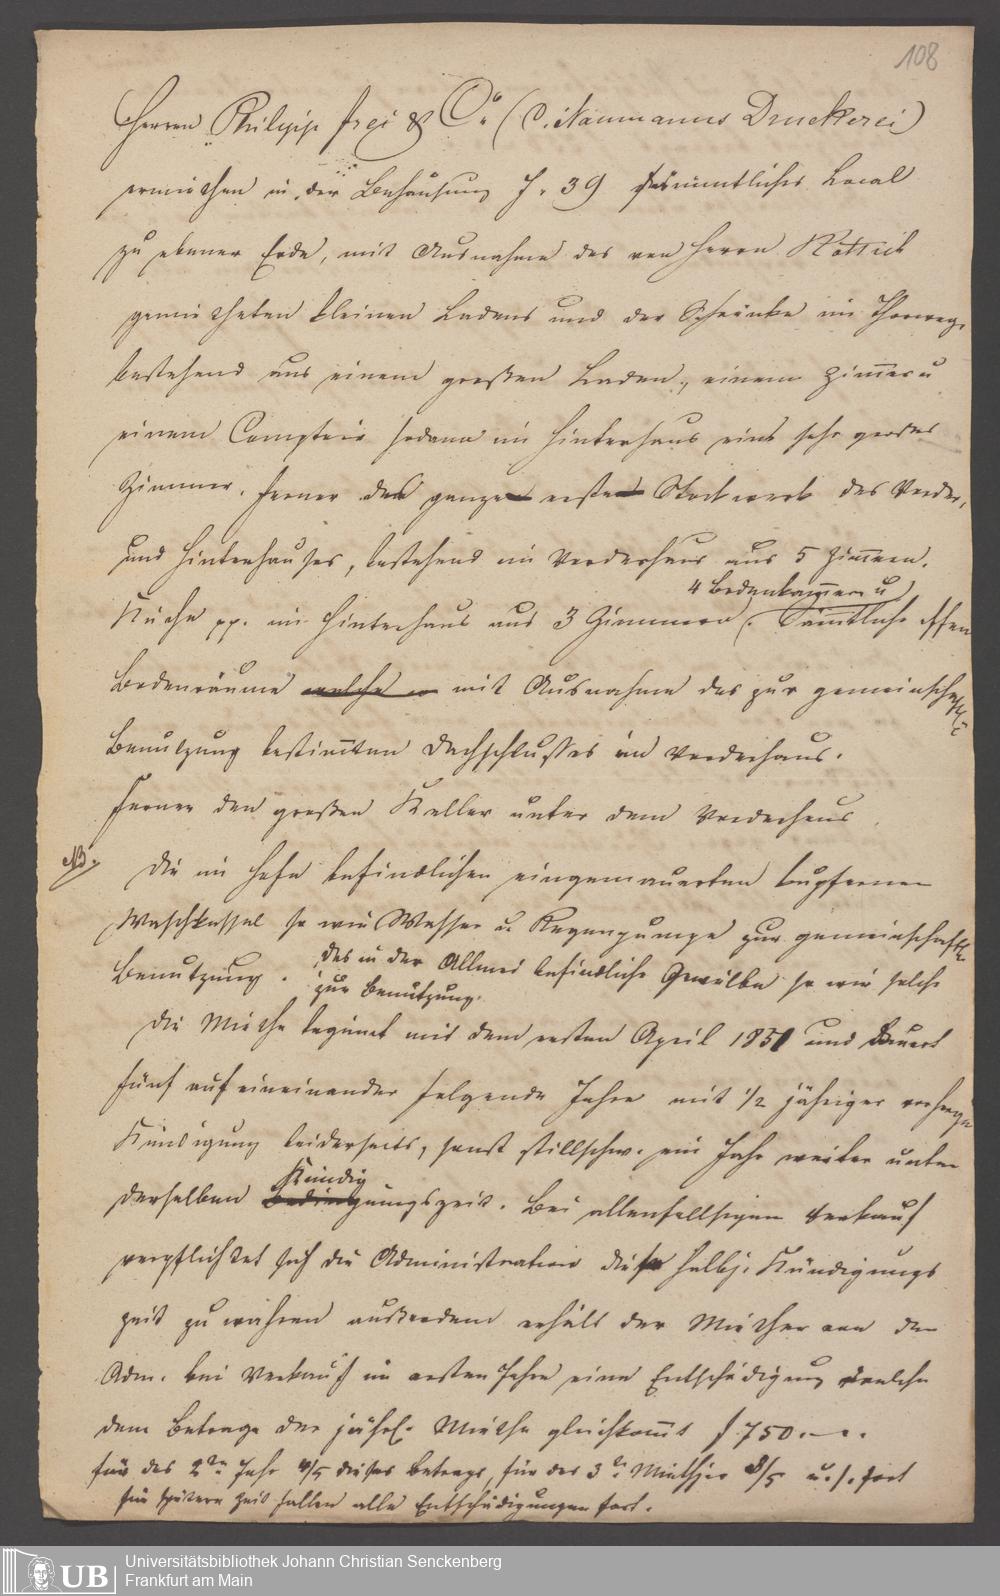 108
Herren Philipp Frei & Co. (C. Naumanns Druckerei)
ermiethen in der Behausung J. 39 sämmtliches Local
zu ebener Erde, mit Ausnahme des von Herrn
gemietheten kleinen Ladens und der Schränke im Thorweg,
bestehend aus einem großen Laden, einem Zimmer u
einem Comptoir sodann im Hinterhaus ein sehr großes
Zimmer, ferner den ganzen ersten Stockwerk des Vorder,
und Hinterhauses, bestehend im Vorderhaus aus 5 Zimmern,
4 Bodenkammern u
Küche pp. im Hinterhaus aus 3 Zimmern. Sämtliche offen
Bodenräume welche mit Ausnahme des zur gemeinschaftl.
Benutzung bestimmten Dachschlusses im Vorderhaus.
Ferner den großen Keller unter dem Vorderhaus.
NB. Die im Hofe befindlichen eingemauerten kupfernen
Waschkessel so wie Wasser u. Regenpumpe zur gemeinschaftl.
Benutzung. das in der Allmei befindliche Gewölbe so wie solche
zur Benützung.
Die Miethe beginnt mit dem ersten April 1851 und dauert
fünf auf eineinander folgende Jahre mit 1/2 jähriger vorherge
Kündigung beiderseits, sonst stillschw. ein Jahr weiter unter
Kündig
derselben Bedingungszeit. Bei allenfallsigem Verkauf
verpflichtet sich die Administration diese halbj. Kündigungs
zeit zu wahren außerdem erhält der Miether von der
Adm. bei Verkauf im ersten Jahre eine Entschädigung welche
dem Betrage der jährl. Miethe gleichkommt f 750.—.
für das 2te Jahr 4/5 dieses Betrags, für das 3te Miethjar 3/5 u. s. fort
für spätere Zeit fallen alle Entschädigungen fort.
UB
Universitätsbibliothek Johann Christian Senckenberg
Frankfurt am Main